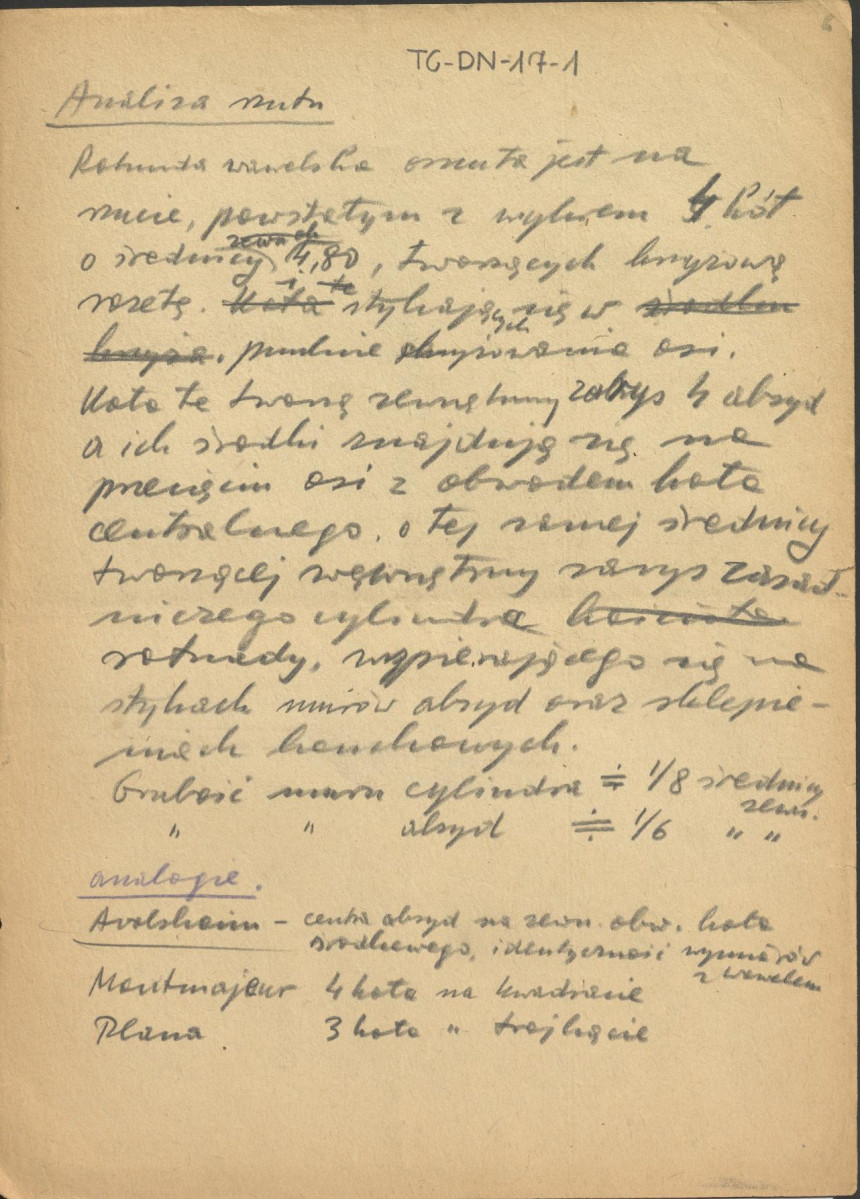 6
TG-DN-17-1
Analiza rzutu
Rotunda wawelska osnuta jest na
rzucie, powstałym z wykrem 4 kół
o średnicy zewnętrz 4,80, tworzących krzyżową
rozetę. Koła i te stykających się w środku
krzyża. punkcie skrzyżowania osi.
Koła te tworzą zewnętrzny zarys 4 absyd
a ich środki znajdują się na
przecięciu osi z obwodem koła
centralnego, o tej samej średnicy
tworzącej wewnętrzny zarys zasad-
niczego cylindra kościoła
rotundy, wspierającego się na
stykach murów absyd oraz sklepie-
niach konchowych.
Grubość muru cylindra ≑ 1/8 średnicy
zewn.
" " absyd ≑ 1/6 " "
analogie.
Avolsheim – centra absyd na zewn. obw. koła
środkowego, identyczność wymiarów
z wawelem
Montmajeur 4 koła na kwadracie
Plana 3 koła " trójkącie